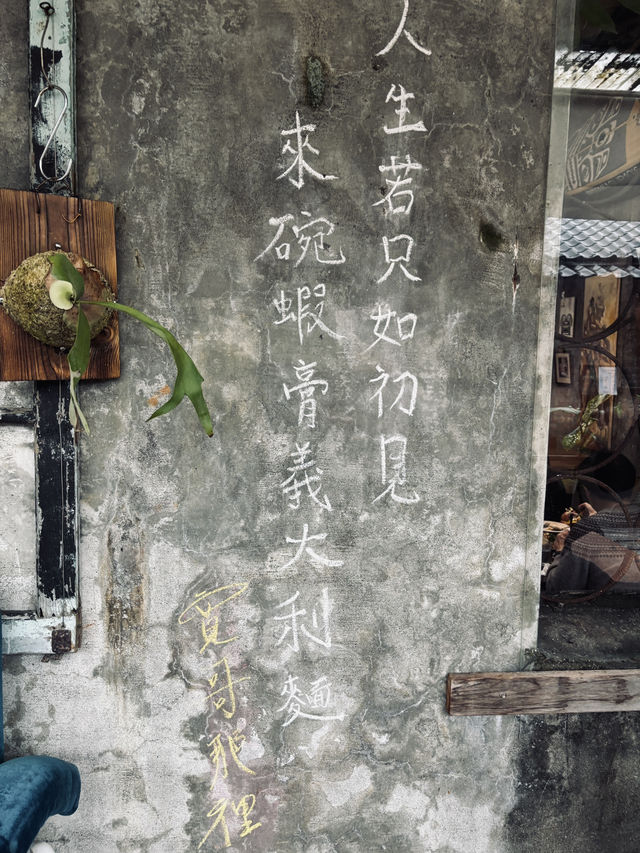 人生若只如初見
來碗蝦膏義大利麵
寬哥飛裡